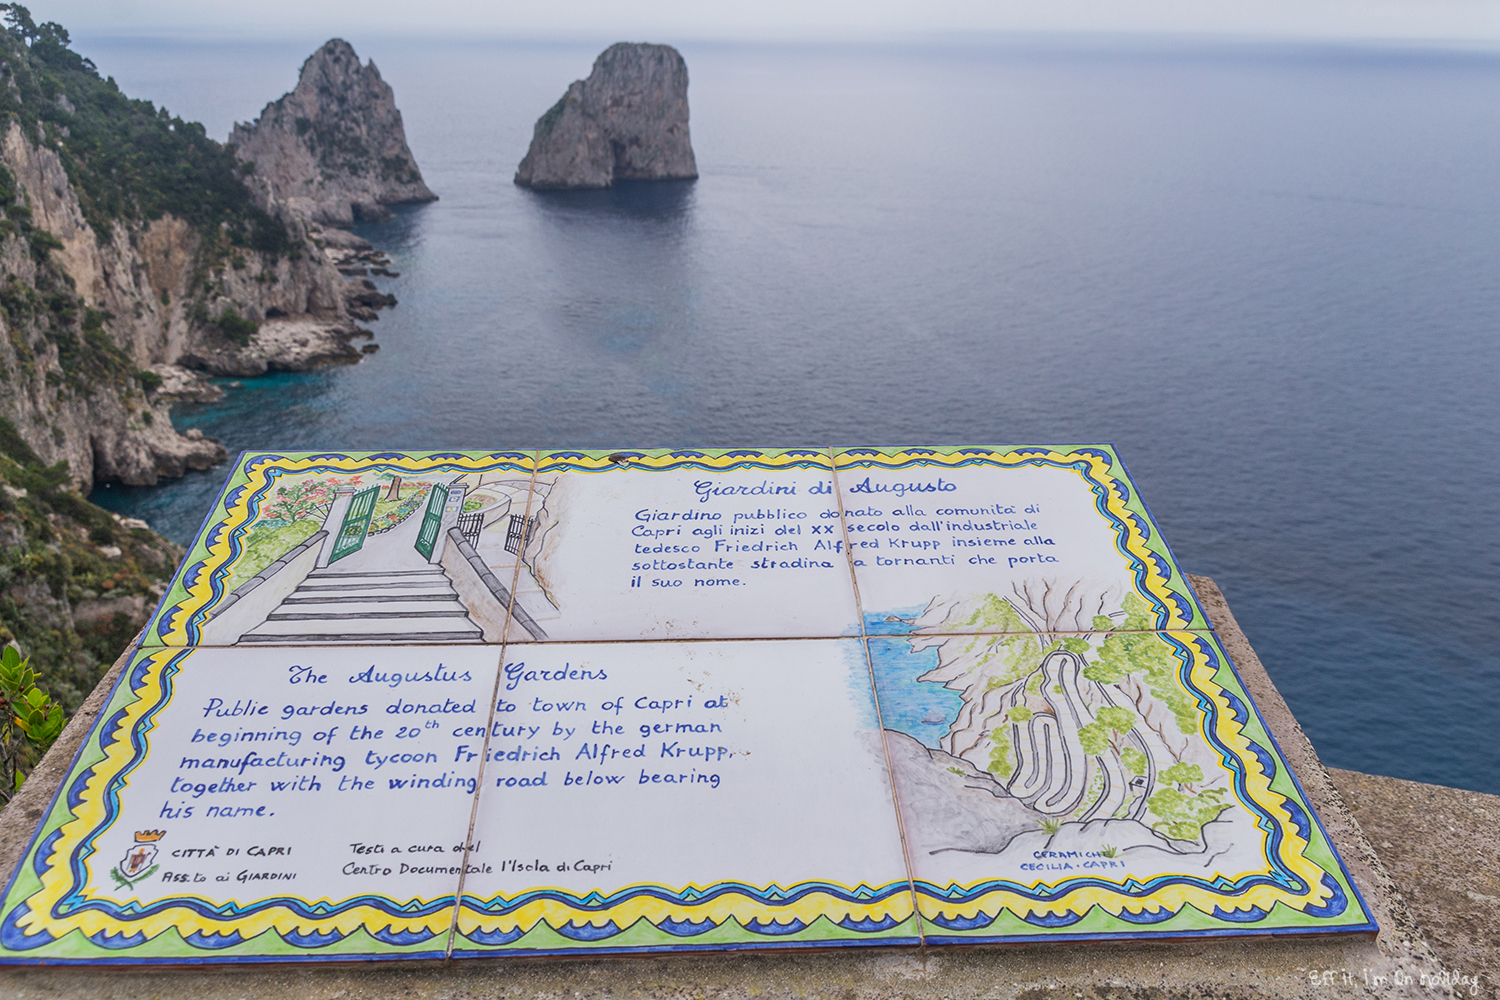 Giardini di Augusto
Giardino pubblico donato alla comunità di
Capri agli inizi del XX secolo dall'industriale
tedesco Friedrich Alfred Krupp insieme alla
sottostante stradina a tornanti che porta
il suo nome.
The Augustus Gardens
Public gardens donated to town of Capri at
beginning of the 20th century by the german
manufacturing tycoon Friedrich Alfred Krupp,
together with the winding road below bearing
his name.
CITTÀ DI CAPRI
Ass.to ai GIARDINI
Testi a cura del
Centro Documentale l'Isola di Capri
CERAMICHE
CECILIA · CAPRI
Eff it, i'm On Holiday